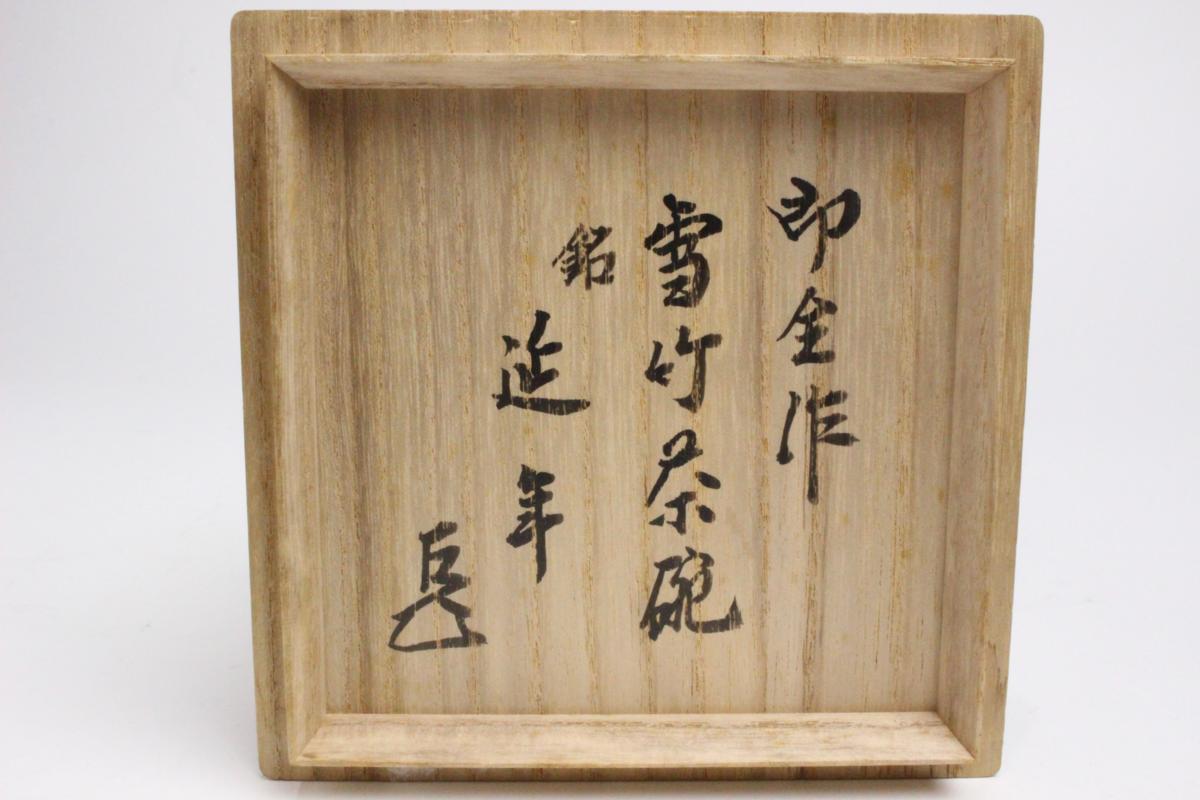 即全作
雪竹茶碗
銘
延年